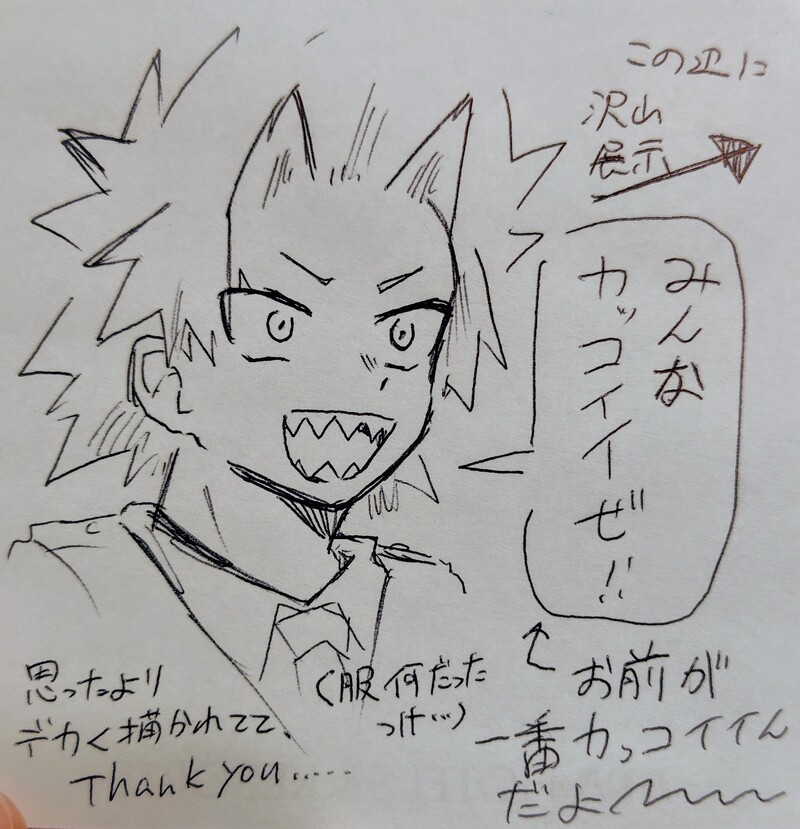 この辺に
沢山
展示
みんな
カッコイイぜ!!
お前が
一番カッコイイん
だよ〜〜〜
(服何だった
っけ…)
思ったより
デカく描かれてて、
Thank you……